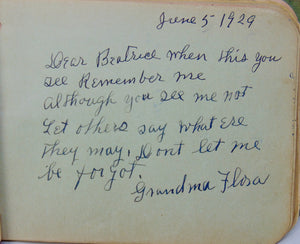 June 5 1929
Dear Beatrice when this you
see Remember me
although you see me not
Let others say what ere
they may, Dont let me
be forgot.
Grandma Flora